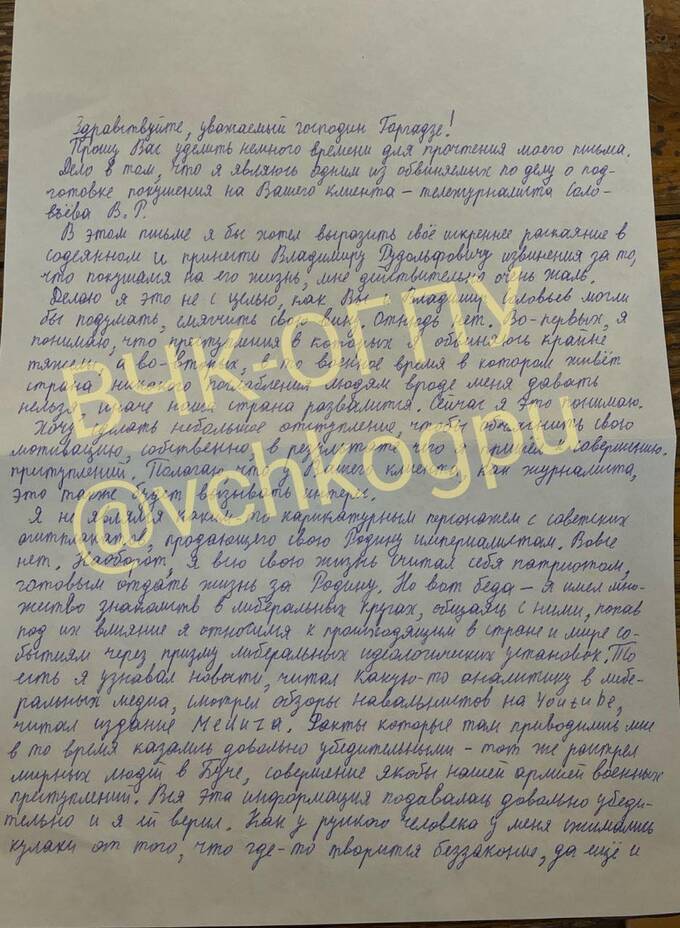 Здравствуйте, уважаемый господин Гаргадзе!
Прошу Вас уделить немного времени для прочтения моего письма.
Дело в том, что я являюсь одним из обвиняемых по делу о под-
готовке покушения на Вашего клиента – тележурналиста Соло-
вьёва В.Р.
В этом письме я бы хотел выразить своё искреннее раскаяние в
содеянном и принести Владимиру Рудольфовичу извинения за то,
что покушался на его жизнь, мне действительно очень жаль.
Делаю я это не с целью, как Вы и Владимир Соловьев могли
бы подумать, смягчить свою вину. Отнюдь нет. Во-первых, я
понимаю, что преступления в которых я обвиняюсь крайне
тяжелы, а во-вторых, – то военное время в котором живёт
страна никакого послабления людям вроде меня давать
нельзя, иначе наша страна развалится. Сейчас я это понимаю.
Хочу сделать небольшое отступление, чтобы объяснить свою
мотивацию, собственно, в результате чего я пришёл к совершению
приступлений. Полагаю что у Вашего клиента, как журналиста,
это также будет вызывать интерес.
Я не являлся каким-то карикатурным персонажем с советских
агитплакатов, продающего свою Родину империалистам. Вовсе
нет. Наоборот, я всю свою жизнь считал себя патриотом,
готовым отдать жизнь за Родину. Но вот беда – я имел мно-
жество знакомств в либеральных кругах, общаясь с ними, попав
под их влияние я относился к происходящим в стране и мире со-
бытиям через призму либеральных идеологических установок. То
есть я узнавал новости, читал какую-то аналитику в либе-
ральных медиа, смотрел обзоры навальнистов на Youtube,
читал издание Meduza. Факты которые там приводились мне
в то время казались довольно убедительными – тот же расстрел
мирных людей в Буче, совершение якобы нашей армией военных
приступлений. Вся эта информация подавалась довольно убеди-
тельно и я ей верил. Как у русского человека у меня сжимались
кулаки от того, что где-то творится беззаконие, да ещё и
ВЧК-ОГПУ
@vchkogpu